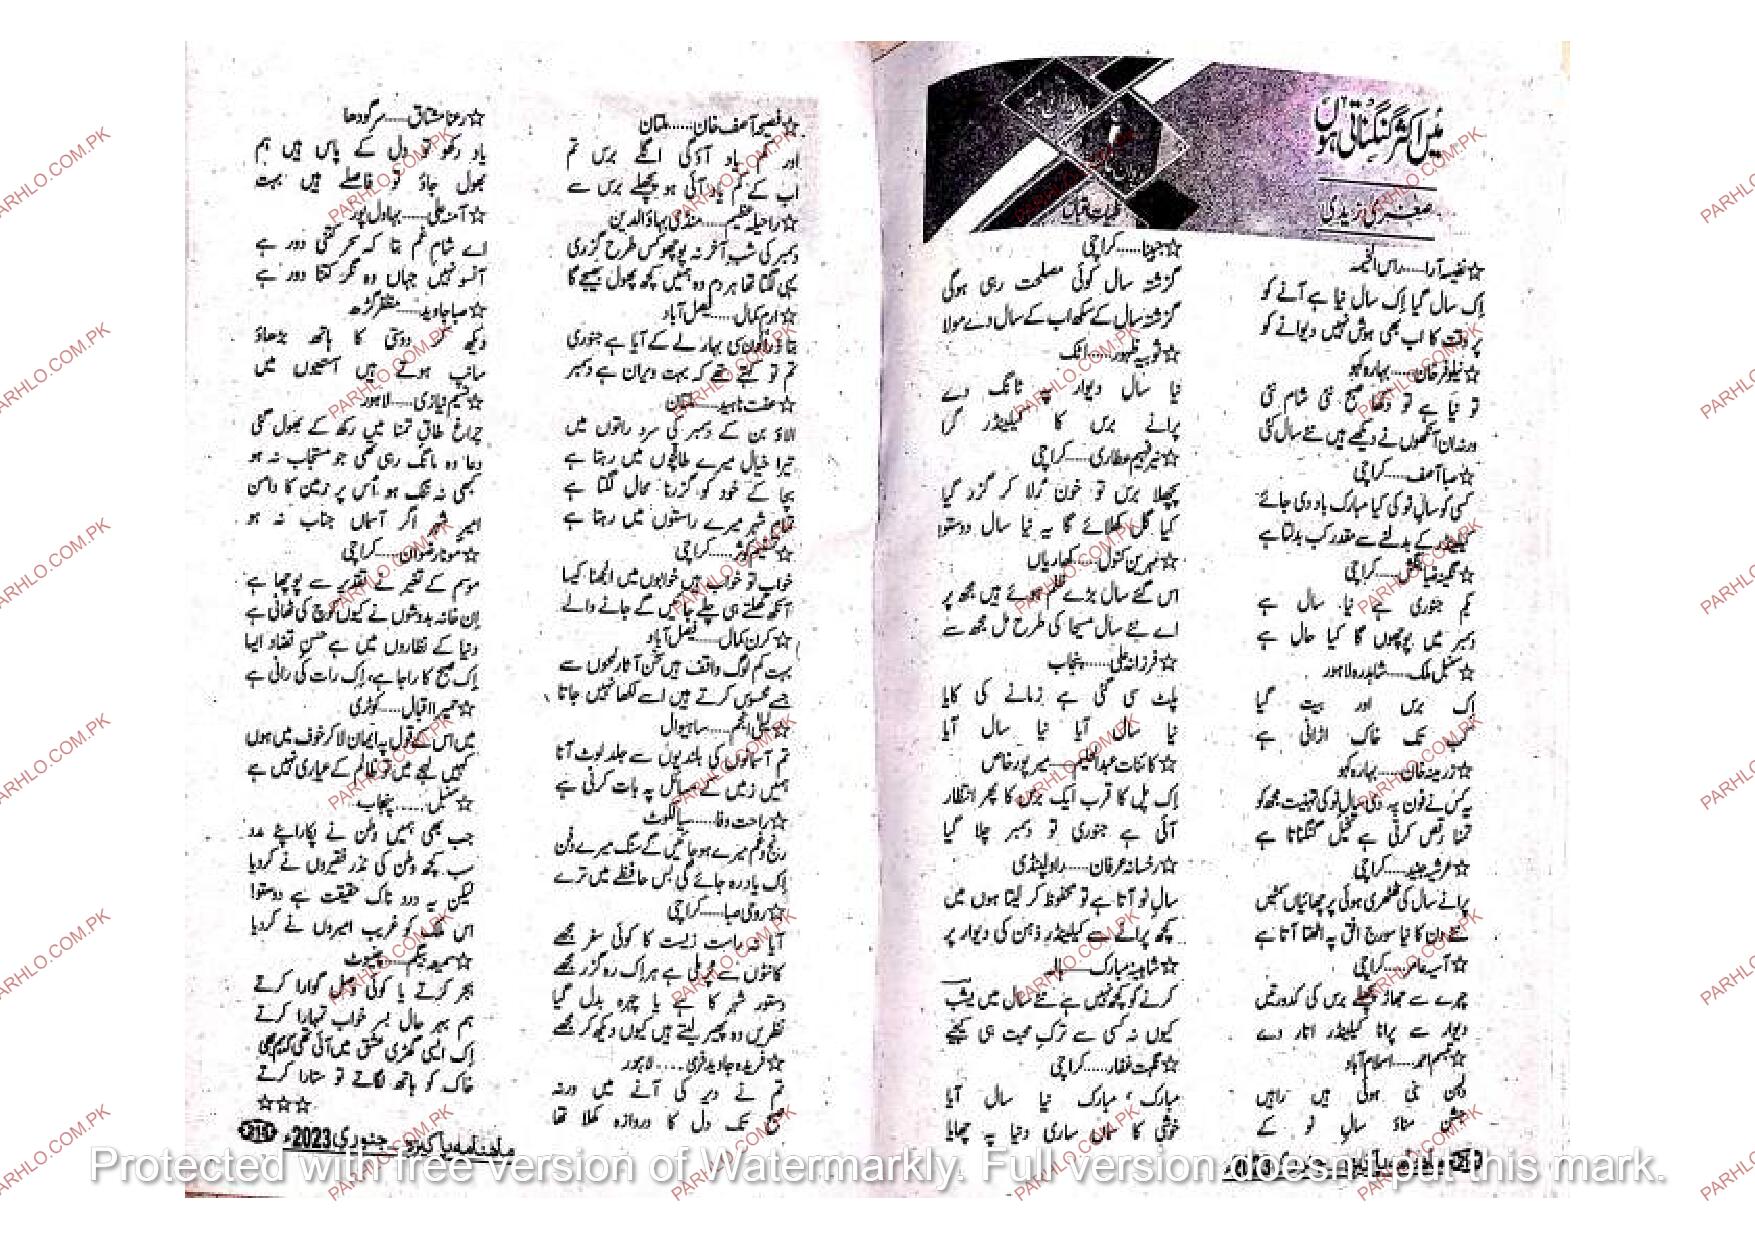 میں اکثر گنگناتی ہوں
صغریٰ زیدی
☆نفیسہ آرا.....راس الخیمہ
اِک سال گیا اِک سال نیا ہے آنے کو
پر وقت کا اب بھی ہوش نہیں دیوانے کو
☆نیلوفر خان.....بہارہ کہو
تو نیا ہے تو دکھا صبح نئی شام نئی
ورنہ ان آنکھوں نے دیکھے ہیں نئے سال کئی
☆صبا آصف.....کراچی
کسی کو سالِ نو کی کیا مبارک باد دی جائے
کیلنڈر کے بدلنے سے مقدر کب بدلتا ہے
☆نگینہ ضیا بنگش.....کراچی
یکم جنوری ہے نیا سال ہے
دسمبر میں پوچھوں گا کیا حال ہے
☆سنبل ملک.....شاہدرہ لاہور
اِک برس اور بیت گیا
کب تک خاک اڑانی ہے
☆زرمینہ خان.....بہارہ کہو
یہ کس نے فون پہ دی سالِ نو کی تہنیت مجھ کو
تمنا رقص کرتی ہے تخیل گنگناتا ہے
☆عرشیہ جنید.....کراچی
پرانے سال کی ٹھٹھری ہوئی پرچھائیاں سمٹیں
نئے دن کا نیا سورج افق پہ اٹھتا آتا ہے
☆آسیہ عامر.....کراچی
چہرے سے جھاڑ پچھلے برس کی کدورتیں
دیوار سے پرانا کیلنڈر اتار دے
☆تبسم احمد.....اسلام آباد
دلہن بنی ہوئی ہیں راہیں
جشن مناؤ سالِ نو کے
☆جینا.....کراچی
گزشتہ سال کوئی مصلحت رہی ہوگی
گزشتہ سال کے سکھ اب کے سال دے مولا
☆ثوبیہ ظہور.....اٹک
نیا سال دیوار پہ ٹانگ دے
پرانے برس کا کیلنڈر گرا
فہیم عطاری.....کراچی
پچھلا برس تو خون رُلا کر گزر گیا
کیا گل کھلائے گا یہ نیا سال دوستو
☆مہرین کنول.....کھاریاں
اس گئے سال بڑے ظلم ہوئے ہیں مجھ پر
اے نئے سال مسیحا کی طرح مل مجھ سے
☆فرزانہ علی.....پنجاب
پلٹ سی گئی ہے زمانے کی کایا
نیا سال آیا نیا سال آیا
☆کائنات عبدالحلیم.....میرپورخاص
اِک پل کا قرب ایک برس کا پھر انتظار
آئی ہے جنوری تو دسمبر چلا گیا
☆رخسانہ عرفان.....راولپنڈی
سالِ نو آتا ہے تو محفوظ کر لیتا ہوں میں
کچھ پرانے سے کیلنڈر ذہن کی دیوار پر
☆شاہینہ مبارک.....
کرنے کو کچھ نہیں ہے نئے سال میں یشب
کیوں نہ کسی سے ترکِ محبت ہی کیجیے
☆نگہت غفار.....کراچی
مبارک، مبارک نیا سال آیا
خوشی کا سماں ساری دنیا پہ چھایا
☆فصیحہ آصف خان.....ملتان
اور کم یاد آؤگی اگلے برس تم
اب کے کم یاد آئی ہو پچھلے برس سے
☆راحیلہ عظیم.....منڈی بہاؤالدین
دسمبر کی شبِ آخر نہ پوچھو کس طرح گزری
یہی لگتا تھا ہر دم وہ ہمیں کچھ پھول بھیجے گا
☆ارم کمال.....فیصل آباد
بتاؤ کون سی بہار لے کے آیا ہے جنوری
تم تو کہتے تھے کہ بہت ویران ہے دسمبر
☆عفت ناہید.....ملتان
الاؤ بن کے دسمبر کی سرد راتوں میں
تیرا خیال میرے طاقچوں میں رہتا ہے
بچا کے خود کو گزرنا محال لگتا ہے
تمام شہر میرے راستوں میں رہتا ہے
☆تسنیم کوثر.....کراچی
خواب تو خواب ہیں خوابوں میں الجھنا کیسا
آنکھ کھلتے ہی چلے جائیں گے جانے والے
☆کرن کمال.....فیصل آباد
بہت کم لوگ واقف ہیں سخن آثار لمحوں سے
جسے محسوس کرتے ہیں اسے لکھا نہیں جاتا
☆لیلیٰ انجم.....ساہیوال
تم آسمانوں کی بلندیوں سے جلد لوٹ آنا
ہمیں زمیں کے مسائل پہ بات کرنی ہے
☆راحت وفا.....سیالکوٹ
رنج و غم میرے ہو جائیں گے سنگ میرے دفن
اِک یاد رہ جائے گی بس حافظے میں ترے
☆روبی صبا.....کراچی
آیا نہ راست زیست کا کوئی سفر مجھے
کانٹوں سے پُر ملی ہے ہر اِک رہ گزر مجھے
دستور شہر کا ہے یا چہرہ بدل گیا
نظریں وہ پھیر لیتے ہیں کیوں دیکھ کر مجھے
☆فریدہ جاوید فری.....لاہور
تم نے دیر کی آنے میں ورنہ
صبح تک دل کا دروازہ کھلا تھا
☆رعنا مشتاق.....سرگودھا
یاد رکھو تو دل کے پاس ہیں ہم
بھول جاؤ تو فاصلے ہیں بہت
☆آمنہ علی.....بہاول پور
اے شامِ غم بتا کہ سحر کتنی دور ہے
آنسو نہیں جہاں وہ نگر کتنا دور ہے
☆صبا جاوید.....مظفر گڑھ
دیکھ کر دوستی کا ہاتھ بڑھاؤ
سانپ ہوتے ہیں آستینوں میں
☆شمیم نیازی.....لاہور
چراغ طاقِ تمنا میں رکھ کے بھول گئی
دعا وہ مانگ رہی تھی جو مستجاب نہ ہو
کبھی نہ تنگ ہو اُس پر زمین کا دامن
امیرِ شہر اگر آسماں جناب نہ ہو
☆مونا رضوان.....کراچی
موسم کے تغیر نے تقدیر سے پوچھا ہے
اِن خانہ بدوشوں نے کیوں کوچ کی ٹھانی ہے
دنیا کے نظاروں میں ہے حسنِ تضاد ایسا
اِک صبح کا راجا ہے، اِک رات کی رانی ہے
☆حمیرا اقبال.....کوٹری
میں اس کے قول پہ ایمان لا کر خوف میں ہوں
کہیں لہجے میں تو ظالم کے عیاری نہیں ہے
☆سنبل.....پنجاب
جب بھی ہمیں وطن نے پکارا پئے مدد
سب کچھ وطن کی نذر فقیروں نے کردیا
لیکن یہ درد ناک حقیقت ہے دوستو!
اس ملک کو غریب امیروں نے کردیا
☆سمیعہ بیگم.....چنیوٹ
ہجر کرتے یا کوئی وصل گوارا کرتے
ہم بہر حال بسر خواب تمہارا کرتے
اِک ایسی گھڑی عشق میں آئی تھی کہ ہم بھی
خاک کو ہاتھ لگاتے تو ستارا کرتے
☆☆☆
ماہنامہ پاکیزہ جنوری 2023ء
Protected with free version of Watermarkly. Full version doesn't put this mark.
PARHLO.COM.PK